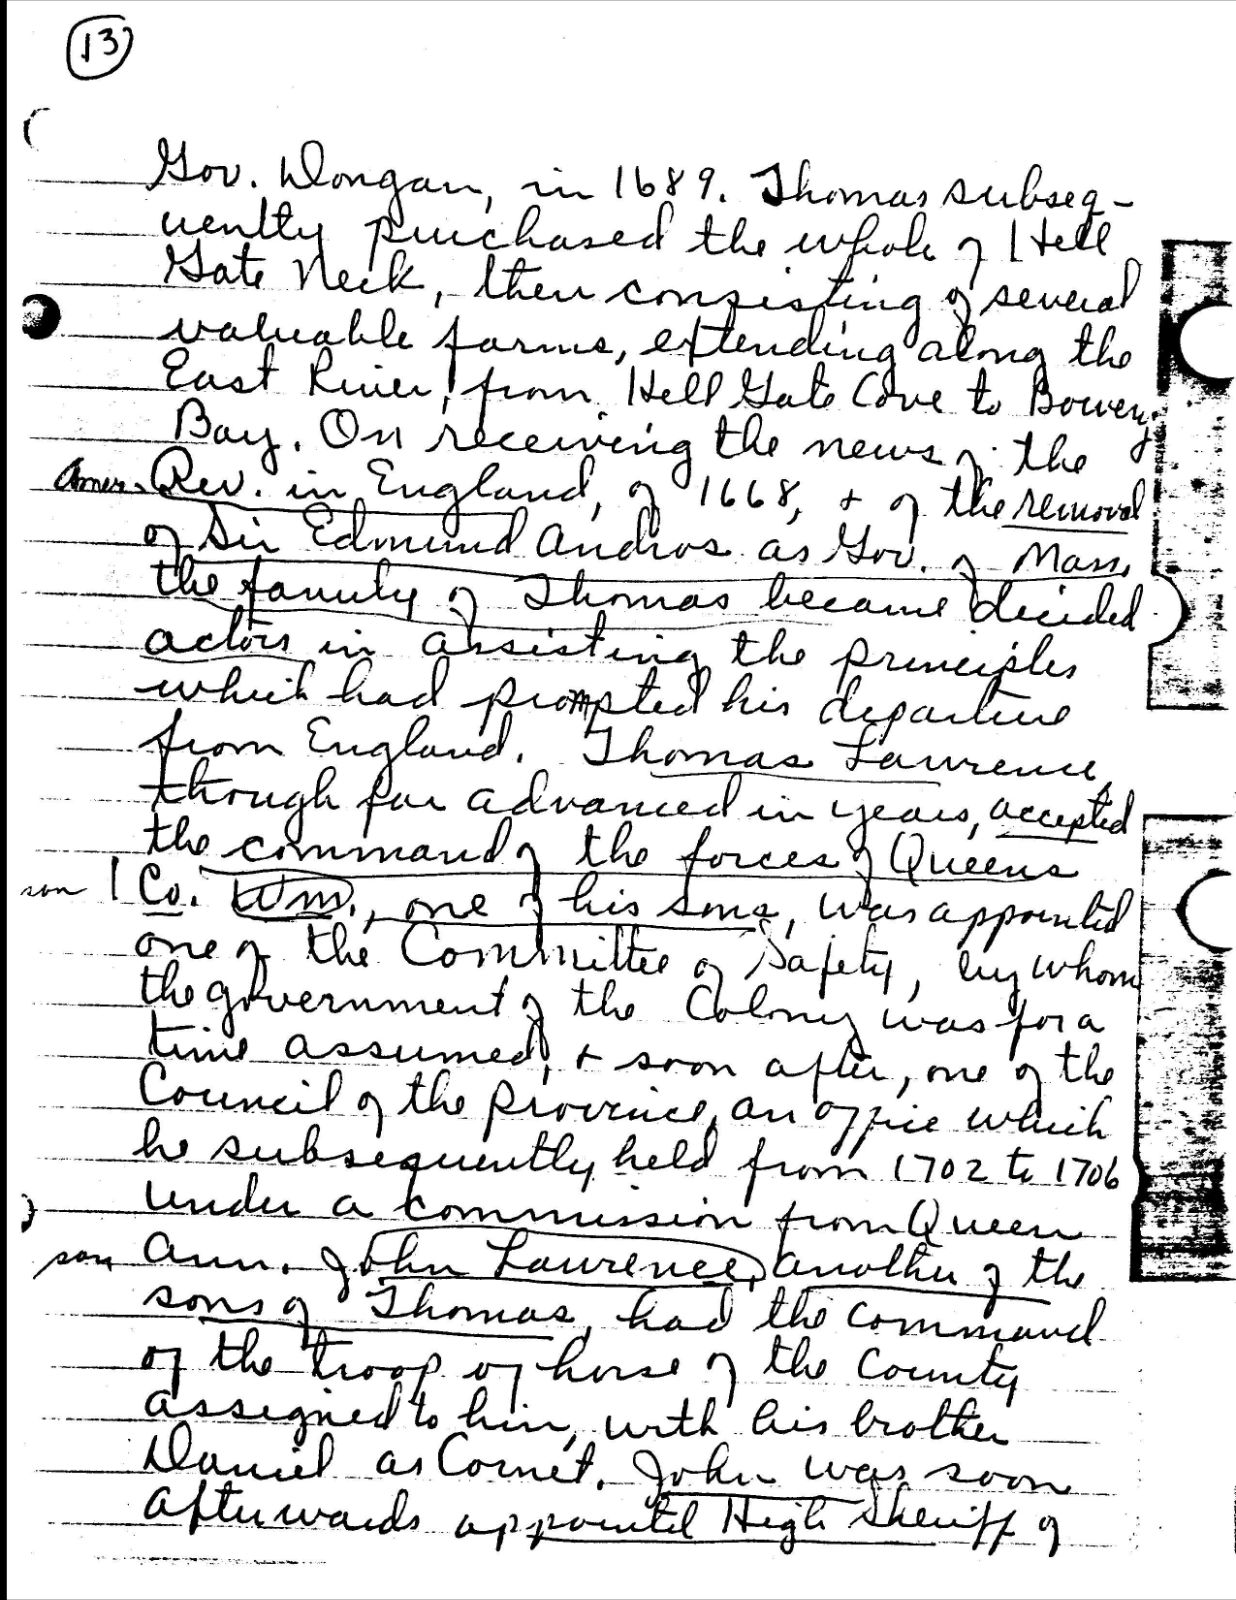 13
Gov. Dongan, in 1689. Thomas subseq-
uently purchased the whole of Hell
Gate Neck, then consisting of several
valuable farms, extending along the
East River, from Hell Gate Cove to Bowery
Bay. On receiving the news of the
Amer. Rev. in England, of 1668, + of the removal
of Sir Edmund Andros as Gov. of Mass,
the family of Thomas became decided
actors in assisting the principles
which had prompted his departure
from England. Thomas Lawrence,
though far advanced in years, accepted
the command of the forces of Queens
son 1 Co. Wm., one of his sons, was appointed
one of the Committee of Safety, by whom
the government of the Colony was for a
time assumed, + soon after, one of the
Council of the Province, an office which
he subsequently held from 1702 to 1706
under a commission from Queen
son Ann. John Lawrence, another of the
sons of Thomas, had the command
of the troop of horse of the County
assigned to him, with his brother
Daniel as Cornet. John was soon
afterwards appointed High Sheriff of